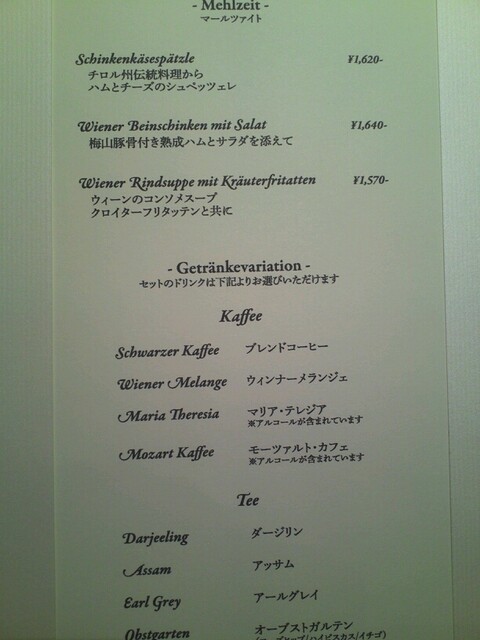 - Mehlzeit -
マールツァイト
Schinkenkäsespätzle ¥1,620-
チロル州伝統料理から
ハムとチーズのシュペッツェレ
Wiener Beinschinken mit Salat ¥1,640-
梅山豚骨付き熟成ハムとサラダを添えて
Wiener Rindsuppe mit Kräuterfritatten ¥1,570-
ウィーンのコンソメスープ
クロイターフリタッテンと共に
- Getränkevariation -
セットのドリンクは下記よりお選びいただけます
Kaffee
Schwarzer Kaffee ブレンドコーヒー
Wiener Melange ウィンナーメランジェ
Maria Theresia マリア・テレジア
※アルコールが含まれています
Mozart Kaffee モーツァルト・カフェ
※アルコールが含まれています
Tee
Darjeeling ダージリン
Assam アッサム
Earl Grey アールグレイ
Obstgarten オーブストガルテン